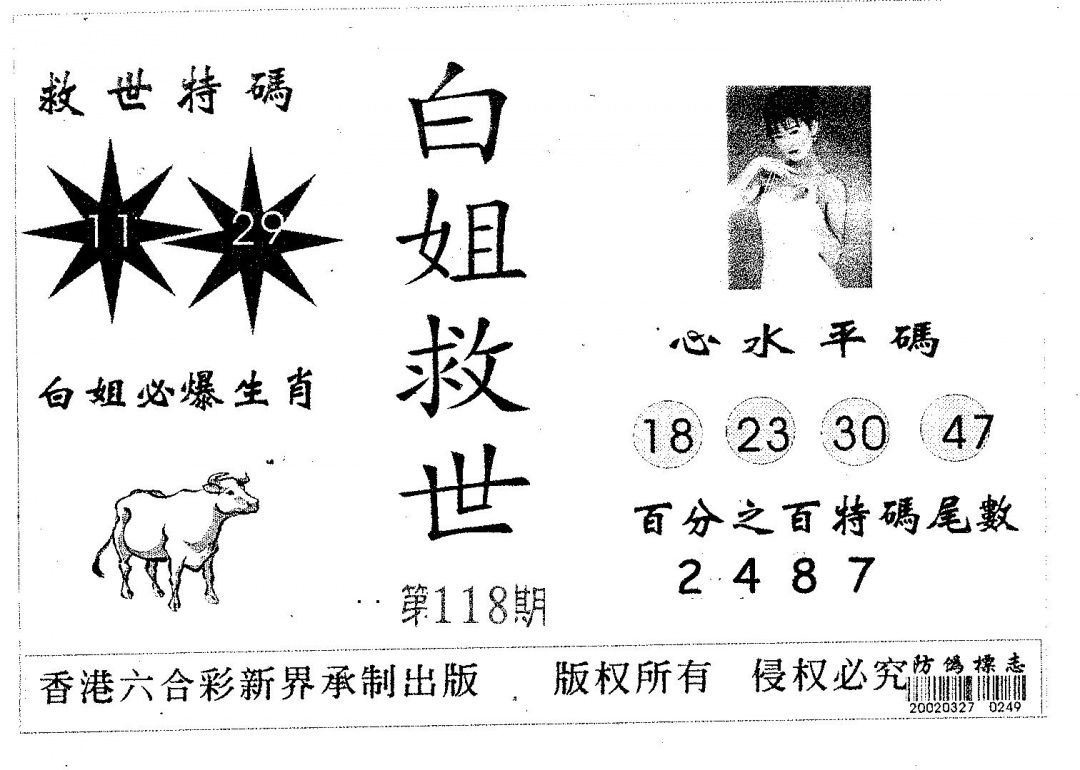 救世特碼
11 29
白姐必爆生肖
白姐救世
第118期
心水平碼
18 23 30 47
百分之百特碼尾數
2 4 8 7
香港六合彩新界承制出版 版权所有 侵权必究
防偽標志
20020327 0249